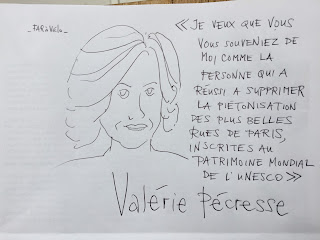 _FAR à Vélo_
« JE VEUX QUE VOUS
VOUS SOUVENIEZ DE
MOI COMME LA
PERSONNE QUI A
RÉUSSI A SUPPRIMER
LA PIÉTONISATION
DES PLUS BELLES
RUES DE PARIS,
INSCRITES AU
PATRIMOINE MONDIAL
DE L'UNESCO »
Valérie Pécresse